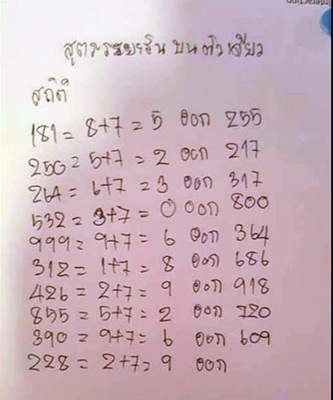 สูตรระยะริน บนตัวเดียว
สถิติ
181 = 8+7 = 5 ออก 255
250 = 5+7 = 2 ออก 217
264 = 6+7 = 3 ออก 317
532 = 3+7 = 0 ออก 800
999 = 9+7 = 6 ออก 364
312 = 1+7 = 8 ออก 686
426 = 2+7 = 9 ออก 918
855 = 5+7 = 2 ออก 720
390 = 9+7 = 6 ออก 609
228 = 2+7 = 9 ออก